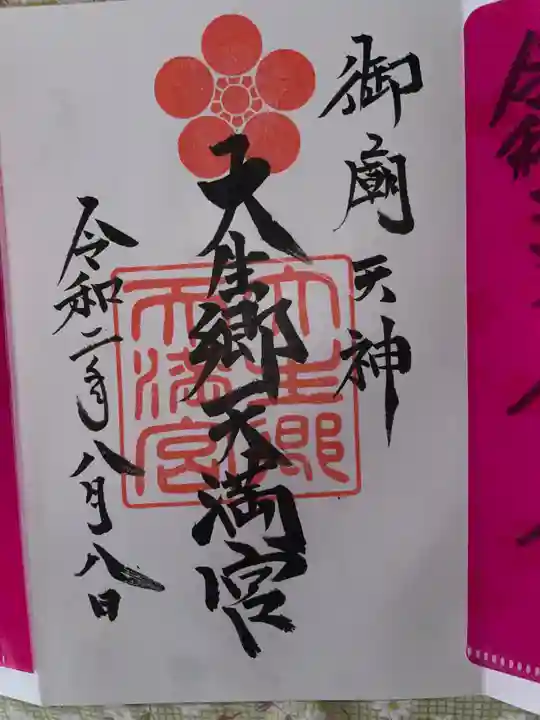 御廟天神
大生郷天満宮
令和二年八月八日
大生郷
天満宮
令和